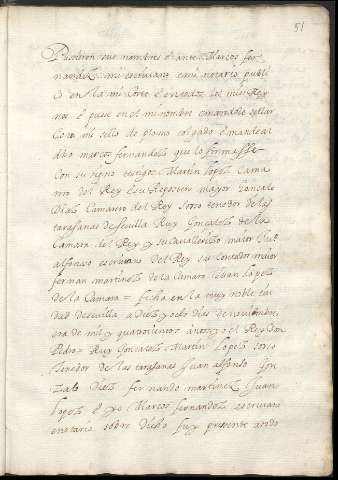 51
Pusieron sus nombres é ante Marcos fer-
nandez mi escrivano e mi notario publi
co en la mi Corte é en todos los mis Rey
nos é puse en el mi nombre é mandele sellar
Con mi sello de plomo colgado é mande al
dho marcos fernandez que lo firmasse
Con su signo testigos Martin lopez Cama
rero del Rey é su Repostero mayor Gonzalo
Diaz Camarero del Rey sorso tenedor de las
tarasanas de sevilla Ruy Gonzalez de la
Camara del Rey y su Cavallerizo maior Juº
alfonso escrivano del Rey su contador maior
fernan martinez de la Camara Juan lopez
de la Camara = fecha en la muy noble ciu
dad de sevilla a diez y ocho dias de noviembre,
era de mil y quatrocientos años, yo el Rey Don
Pedro = Ruy Gonzalez Martin lopez sorso
tenedor de las tarasanas Juan alfonso Gon
zalo Diez fernando martinez Juan
lopez é yo Marcos fernandez escrivano
e notario sobre dicho fuy presente a todo